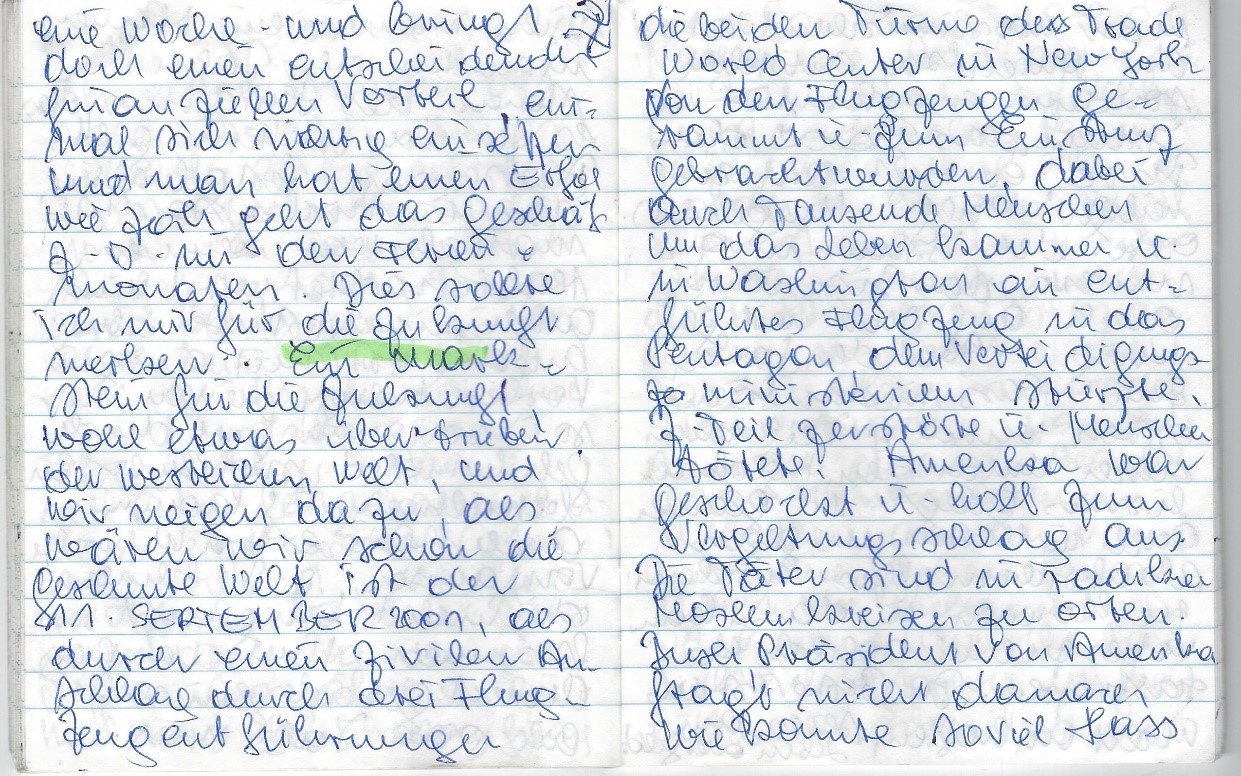 eine Woche - und bringt
doch einen entscheidenden
finanziellen Vorteil, ein-
mal sich richtig einsetzen
und man hat einen Erfol
wie zäh geht das Geschäf
z. B. in den Ferien-
monaten. Dies sollte
ich mir für die Zukunft
merken. Ein Mark-
stein für die Zukunft
wohl etwas übertrieben
der westlichen Welt, und
wir neigen dazu, als
wären wir schon die
gesamte Welt ist der
11. SEPTEMBER 2001, als
durch einen zivilen An-
schlag durch drei Flug-
zeugentführungen
die beiden Türme des Trade
World Center in New York
von den Flugzeuggen ge-
rammt u. zum Einsturz
gebracht wurden, dabei
auch Tausende Menschen
um das Leben kammen u.
in Washington ein ent-
führtes Flugzeug in das
Pentagon, dem Verteidigungs-
ministerium stürzte,
z. Teil zerstörte u. Menschen
tötete. Amerika war
geschockt u. holt zum
Vergeltungsschlag aus.
Die Täter sind in radikalen
Moslemkreisen zu orten.
Präsident von Amerika
fragt nicht danach
wie konnte soviel Hass